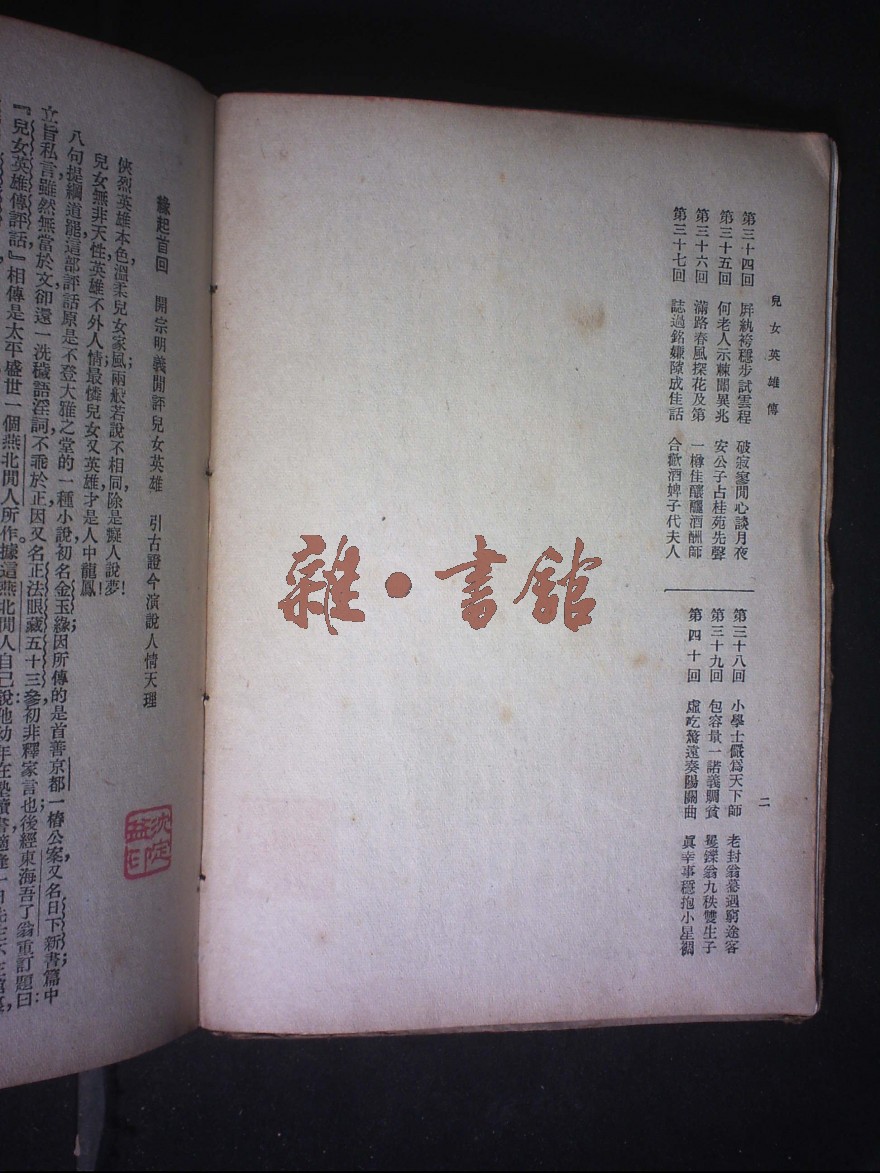 兒女英雄傳
二
第三十四回　屛紈袴穩步試雲程　破寂寥閒心談月夜
第三十五回　何老人示棘闈異兆　安公子占桂苑先聲
第三十六回　滿路春風探花及第　一樽佳釀釃酒酬師
第三十七回　誌過銘嫌隙成佳話　合歡酒婢子代夫人
第三十八回　小學士儼爲天下師　老封翁驀遇窮途客
第三十九回　包容量一諾義賙貧　矍鑠翁九秩雙生子
第四十回　虛吃驚遠奏陽關曲　眞幸事穩抱小星裯
雜·書館
緣起首回　開宗明義閒評兒女英雄　引古證今演說人情天理
俠烈英雄本色，溫柔兒女家風，兩般若說不相同，除是癡人說夢！
兒女無非天性，英雄不外人情，最憐兒女又英雄，才是人中龍鳳！
八句提綱道罷，這部評話原是不登大雅之堂的一種小說，初名金玉緣；因所傳的是首善京都一樁公案，又名日下新書。篇中
立旨私言，雖然無當於文，卻還一洗穢語淫詞，不乖於正，因又名正法眼藏五十三參，初非釋家言也；後經東海吾了翁重訂，題曰：
『兒女英雄傳評話。』相傳是太平盛世一個燕北閒人所作。據這燕北閒人自己說：他幼年在塾讀書，適逢一日先生不在館裏，
沈定益印